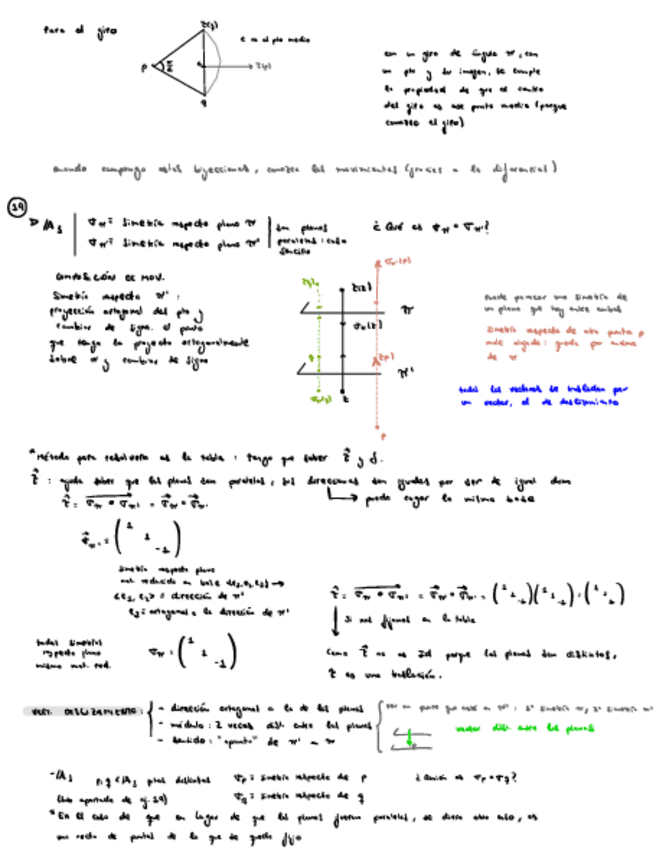 Para el giro
τ(q)
c es el pto medio
p
τ(p)
q
en un giro de ángulo π, con
un pto y su imagen, se cumple
la propiedad de que el centro
del giro es ese punto medio (porque
conozco el giro)
cuando compongo estas biyecciones, conozco los movimientos (gracias a la diferencial)
19
σπ = simetría respecto plano π
σπ' = simetría respecto plano π'
son planos
paralelos: caso
sencillo
¿Qué es σπ ∘ σπ'?
COMPOSICIÓN DE MOV.
Simetría respecto π':
proyección ortogonal del pto y
cambiar de signo. el punto
que tengo lo proyecto ortogonalmente
sobre π y cambiar de signo
π
π'
puede parecer una simetría de
un plano que hay entre ambos
simetría respecto de otro punto p
de π
todos los vectores se trasladan por
un vector, el de deslizamiento
*Método para resolverlo es la tabla: tengo que saber τ⃗ y
τ⃗: ayuda saber que los planos son paralelos, sus direcciones son iguales por ser de igual dim
puedo coger la misma base
τ⃗ = σπ ∘ σπ' = σ⃗π ∘ σ⃗π'
σ⃗π' = (1 1 -1)
simetría respecto plano
mat. reducida en base {e1,e2,e3} →
<e1, e2> = dirección de π'
e3 = ortogonal a la dirección de π'
τ⃗ = σπ ∘ σπ' = σ⃗π ∘ σ⃗π' = (1 1 -1)(1 1 -1) = (1 1 1)
Si nos fijamos en la tabla
todas simetrías
respecto plano
misma mat. red.
σπ = (1 1 -1)
Como τ no es Id porque los planos son distintos,
τ es una traslación.
VECT. DESLIZAMIENTO:
- dirección ortogonal a la de los planos
- módulo: 2 veces dist. entre los planos
- sentido: "apunta" de π' a π
ver un punto que esté en π': 1º simetría π', 2º simetría π
vector dist. entre los planos
p,q ∈ A3 ptos distintos
σp = simetría respecto de p
¿Quién es σp ∘ σq?
(otro apartado de ej. 19)
σq = simetría respecto de q
*En el caso de que en lugar de que los planos fueran paralelos, se diera otro caso, es
una recta de puntos de la que se queda fijo